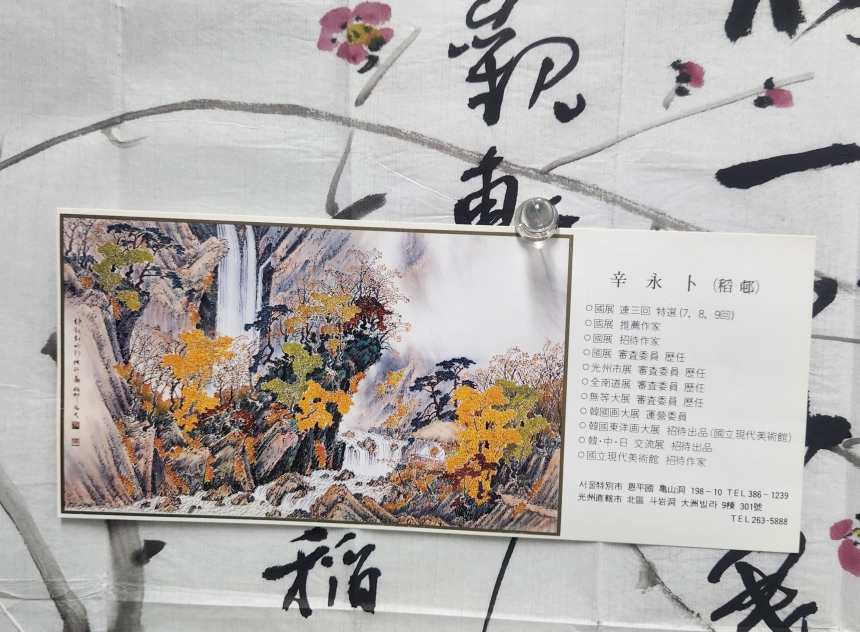 觀
一
辛 永 卜 (稻 邨)
○國展 連三回 特選(7. 8. 9回)
○國展 推薦作家
○國展 招待作家
○國展 審査委員 歷任
○光州市展 審査委員 歷任
○全南道展 審査委員 歷任
○無等大展 審査委員 歷任
○韓國画大展 運營委員
○韓國東洋画大展 招待出品(國立現代美術館)
○韓·中·日 交流展 招待出品
○國立現代美術館 招待作家
서울特別市 恩平國 亀山洞 198-10 TEL 386-1239
光州直轄市 北區 斗岩洞 大洲빌라 9棟 301號
TEL 263-5888
稻